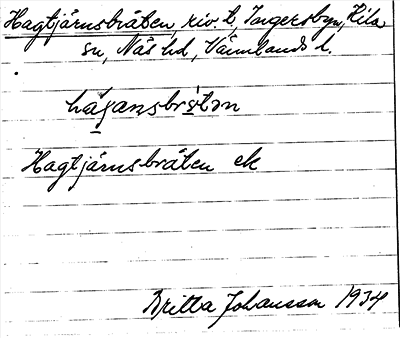 Hagtjärnsbråten, riv. t, Ingersbyn, Kila
sn, Näs hd, Värmlands l.
hägansbrötən
Hagtjärnsbråten ek
Britta Johansson 1934